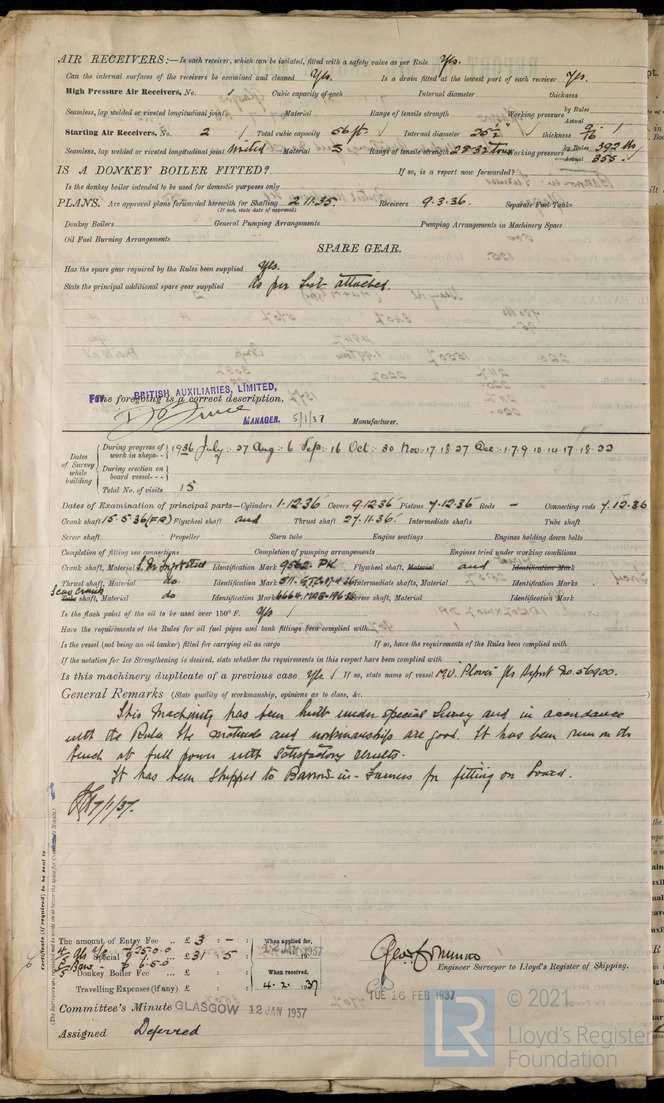 AIR RECEIVERS:—Is each receiver, which can be isolated, fitted with a safety valve as per Rule Yes.
Can the internal surfaces of the receivers be examined and cleaned Yes. Is a drain fitted at the lowest part of each receiver Yes.
High Pressure Air Receivers, No. 1 Cubic capacity of each Internal diameter thickness
Seamless, lap welded or riveted longitudinal joint Material Range of tensile strength Working pressure by Rules Actual
Starting Air Receivers, No. 2 Total cubic capacity 56 ft Internal diameter thickness 9/16
Seamless, lap welded or riveted longitudinal joint Material S Range of tensile strength 28-32 tons Working pressure by Rules 392 lbs Actual 355
IS A DONKEY BOILER FITTED? If so, is a report now forwarded?
Is the donkey boiler intended to be used for domestic purposes only
PLANS. Are approved plans forwarded herewith for Shafting 2.11.35. Receivers 9.3.36. Separate Fuel Tanks
(If not, state date of approval)
Donkey Boilers General Pumping Arrangements Pumping Arrangements in Machinery Space
Oil Fuel Burning Arrangements
SPARE GEAR.
Has the spare gear required by the Rules been supplied Yes.
State the principal additional spare gear supplied As per List attached.
For BRITISH AUXILIARIES, LIMITED,
The foregoing is a correct description,
MANAGER. 5/1/37 Manufacturer.
Dates of Survey while building
During progress of work in shops - - 1936 July: 27 Aug: 6 Sep: 16 Oct: 30 Nov: 17 18 27 Dec: 1.7.9 10 14 17.18.22
During erection on board vessel - - -
Total No. of visits 15
Dates of Examination of principal parts—Cylinders 1.12.36 Covers 9.12.36 Pistons 7.12.36 Rods – Connecting rods 7.12.36
Crank shaft 15.5.36 Flywheel shaft and Thrust shaft 27.11.36. Intermediate shafts Tube shaft
Screw shaft Propeller Stern tube Engine seatings Engines holding down bolts
Completion of fitting sea connections Completion of pumping arrangements Engines tried under working conditions
Crank shaft, Material S.M. Ingot Steel Identification Mark 9562 PK. Flywheel shaft, Material and Identification Mark
Thrust shaft, Material do. Identification Mark Intermediate shafts, Material Identification Marks
Tube shaft, Material do Identification Mark Screw shaft, Material Identification Mark
Is the flash point of the oil to be used over 150° F. Yes
Have the requirements of the Rules for oil fuel pipes and tank fittings been complied with
Is the vessel (not being an oil tanker) fitted for carrying oil as cargo If so, have the requirements of the Rules been complied with
If the notation for Ice Strengthening is desired, state whether the requirements in this respect have been complied with
Is this machinery duplicate of a previous case Yes If so, state name of vessel M.V. "Plover" Gls Report No. 56900.
General Remarks (State quality of workmanship, opinions as to class, &c.
This Machinery has been built under special Survey and in accordance
with the Rules. The materials and workmanship are good. It has been run on the
bench at full power with satisfactory results.
It has been shipped to Barrow-in-Furness for fitting on board.
7/1/37.
certificate (if required) to be sent to
(The Surveyors are requested not to write on or below the space for Committee's Minute.)
The amount of Entry Fee .. £ 3 : – : When applied for, 12 JAN 1937
Special £ 31 : 5 :
Donkey Boiler Fee £ : : When received,
Travelling Expenses (if any) £ : : 4. 2. 1937
Engineer Surveyor to Lloyd's Register of Shipping.
TUE 16 FEB 1937
Committee's Minute GLASGOW 12 JAN 1937
Assigned Deferred
LR © 2021.
Lloyd's Register
Foundation